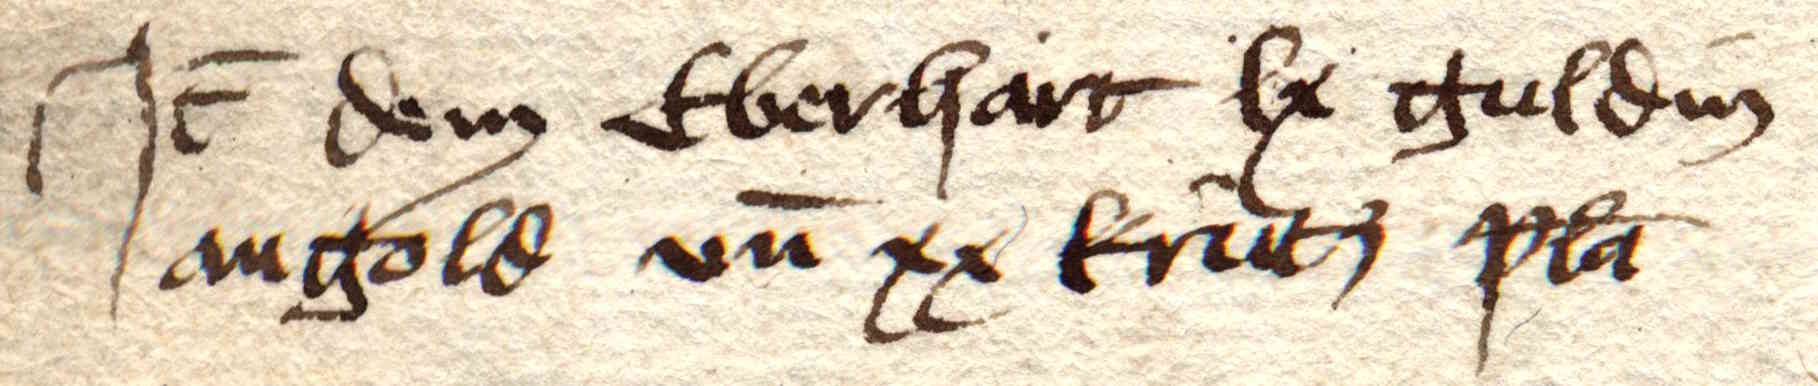 It̄ dem Eberhart lx guldin̄
an gold vn̄ xx krútz pla